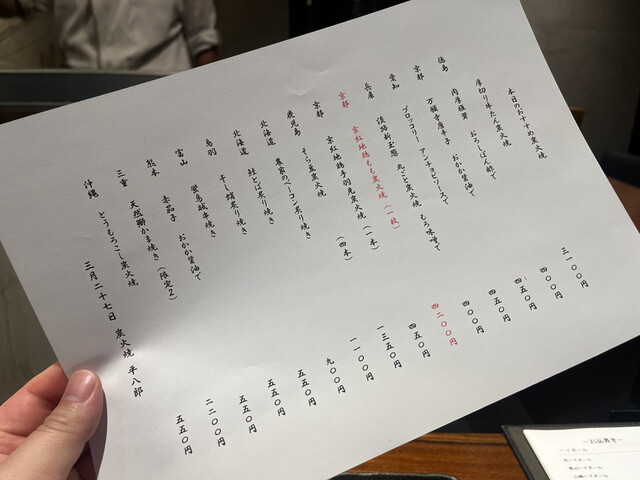 本日のおすすめ炭火焼
厚切り牛たん炭火焼
徳島 肉厚椎茸 おろしぽん酢で
京都 万願寺唐辛子 おかか醤油で
愛知 ブロッコリー アンチョビソースで
兵庫 淡路新玉葱 丸ごと炭火焼 もろ味噌で
京都 京紅地鶏もも炭火焼(一枚)
京都 京紅地鶏手羽先炭火焼(一本)
(四本)
鹿児島 そら豆炭火焼
北海道 農家のベーコン炙り焼き
北海道 鮭とば炙り焼き
鳥羽 干し蛸炙り焼き
富山 蛍烏賊串焼き
熊本 赤茄子 おかか醤油で
三重 天然鰤かま焼き(限定2)
沖縄 とうもろこし炭火焼
三月二十七日 炭火焼 平八郎
三一〇〇円
四〇〇円
四五〇円
四五〇円
四〇〇円
四二〇〇円
四五〇円
一三五〇円
一一〇〇円
九〇〇円
五五〇円
五五〇円
五五〇円
二二〇〇円
五五〇円
ハイボール